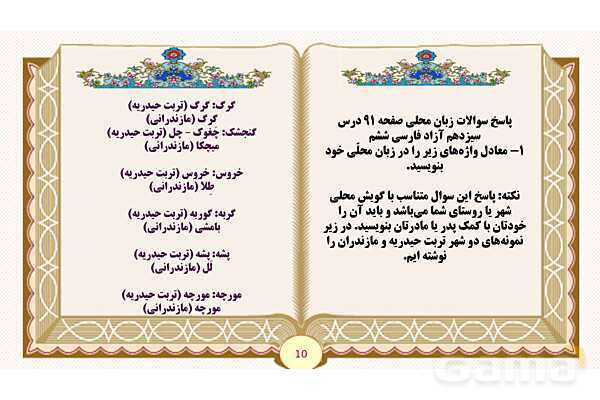 پاسخ سوالات زبان محلی صفحه ۹۱ درس
سیزدهم آزاد فارسی ششم
۱– معادل واژه‌های زیر را در زبان محلّی خود
بنویسید.
نکته: پاسخ این سوال متناسب با گویش محلی
شهر یا روستای شما می‌باشد و باید آن را
خودتان با کمک پدر یا مادرتان بنویسید. در زیر
نمونه‌های دو شهر تربت حیدریه و مازندران را
نوشته ایم.
گرگ: گرگ (تربت حیدریه)
گرگ (مازندرانی)
گنجشک: چَغوک – چل (تربت حیدریه)
میچکا (مازندرانی)
خروس: خروس (تربت حیدریه)
طِلا (مازندرانی)
گربه: گوربه (تربت حیدریه)
بامشی (مازندرانی)
پشه: پشه (تربت حیدریه)
لَل (مازندرانی)
مورچه: مورچه (تربت حیدریه)
مورچه (مازندرانی)
10
Gama